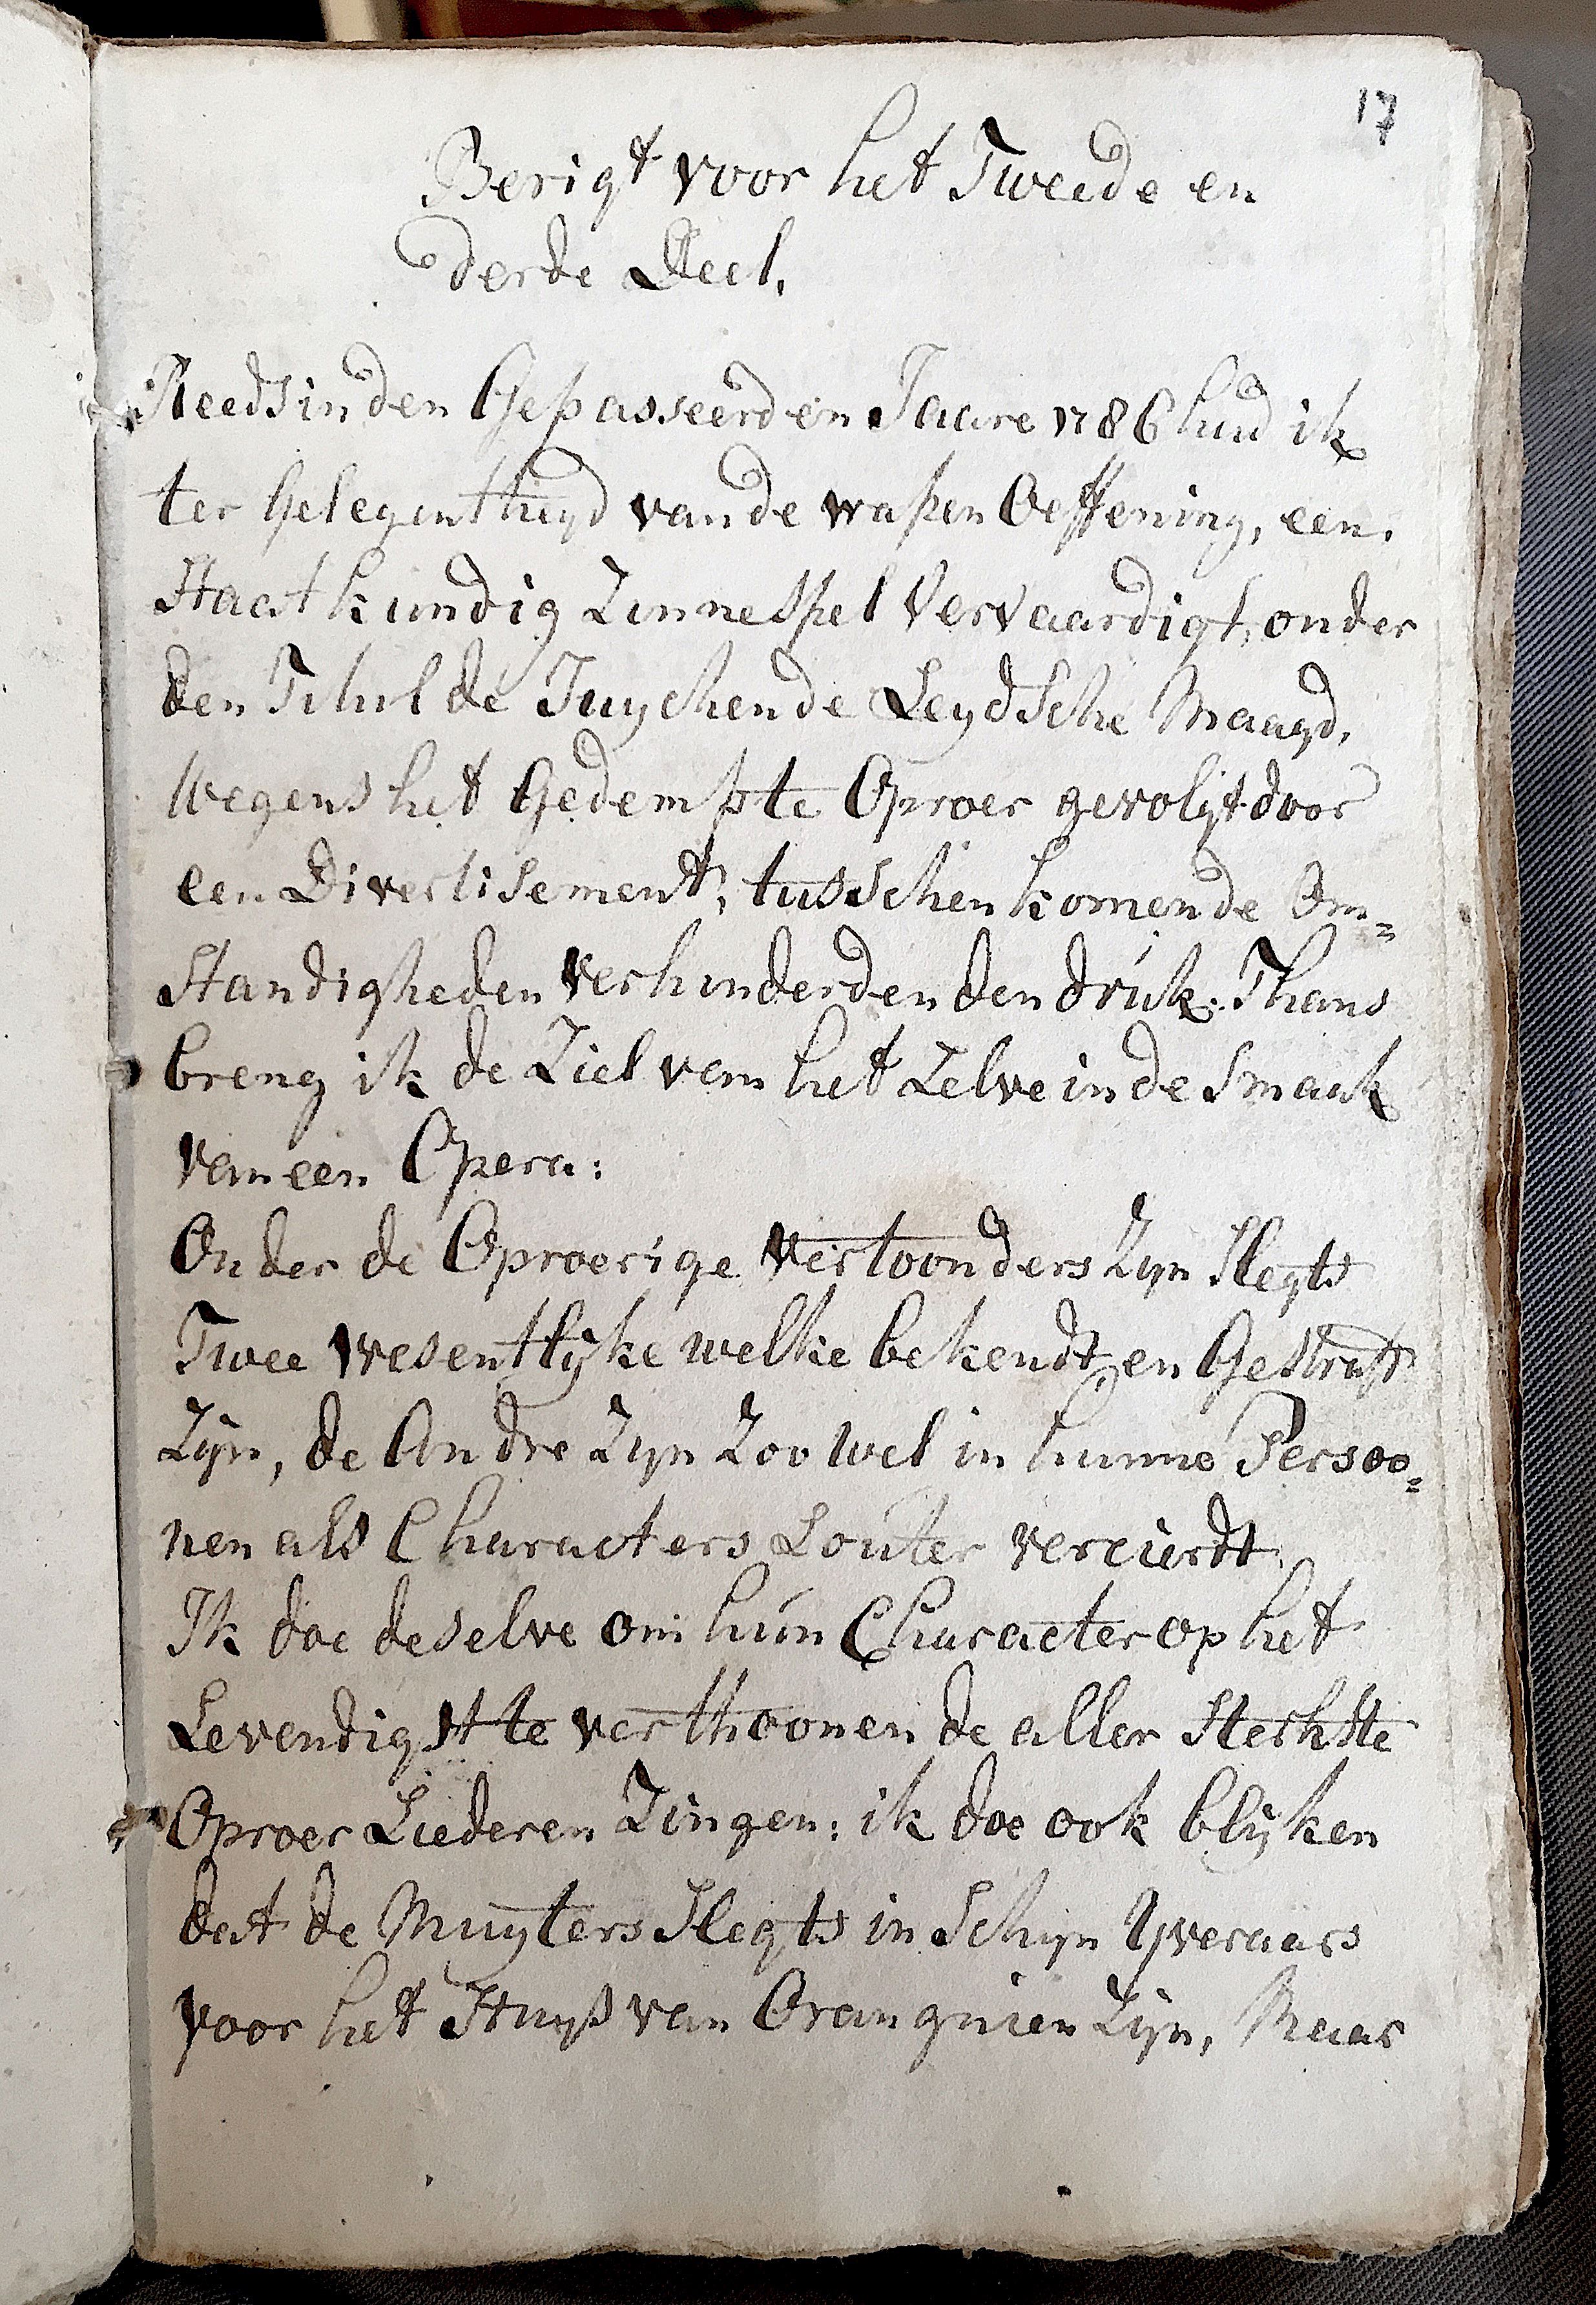 17
Berigt voor het Tweede en
derde Deel.
Reeds in den Gepasseerden Jaare 1786 had ik
ter Gelegentheyd van de wapen Oeffening, een
Staatkundig Zinnespel Vervaardigt, onder
den Titul de Juychende Leydsche Maagd,
Wegens het Gedempte Oproer gevolgt door
een Divertisement, tusschen komende Om=
Standigheden verhinderden den druk. Thans
breng ik de Ziel van het Zelve in de Smaak
van een Opera:
Onder de Oproerige vertoonders Zyn Slegts
Twee wesentlyke welke bekendt en Gestraft
Zyn, de Andre Zyn Zoo wel in hunne Persoo=
nen als Characters Louter vercierdt.
Ik doe deselve om hun Character op het
Levendigst te verthoonen de aller Slechtste
Oproer Liederen Zingen: ik doe ook blyken
dat de Muyters Slegts in Schyn Yveraars
voor het Huyß van Orangnien Zyn, Maar